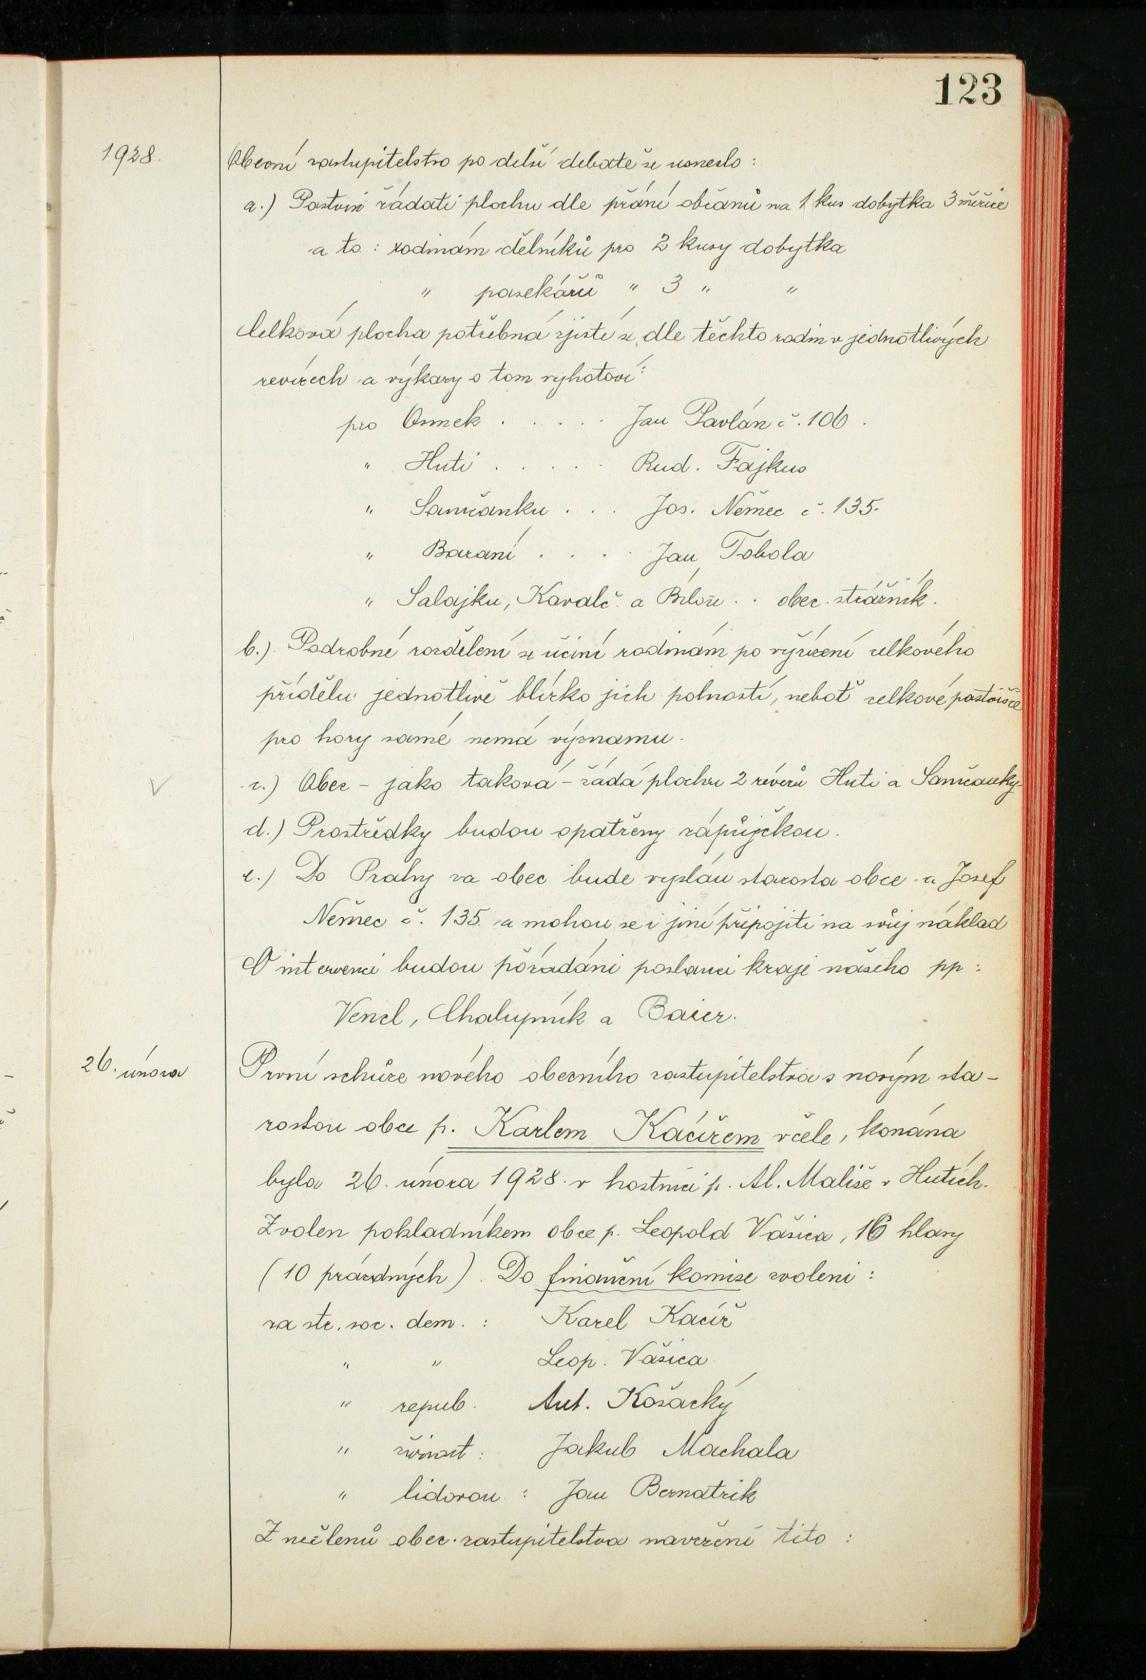 123
1928.
Obecní zastupitelstvo po delší debatě se usneslo :
a.) Pastvin žádati plochu dle přání občanů na 1 kus dobytka 3 měřice
a to : rodinám dělníků pro 2 kusy dobytka
" pasekářů " 3 " "
Celková plocha potřebná zjistí se dle těchto rodin v jednotlivých
revírech a výkazy o tom vyhotoví :
pro Osmek . . . . . Jan Pavlán č. 106 .
" Huti . . . . . Rud. Fajkus
" Samčanku . . . Jos. Němec č. 135.
" Baraní . . . . Jan Tobola
" Salajku, Kavalč. a Bílou . . obec. strážník.
b.) Podrobné rozdělení se učiní rodinám po vyřízení celkového
přídělu jednotlivě blízko jich polností, neboť celkové pastviště
pro hory samé nemá významu.
c.) Obec - jako taková - žádá plochu 2 revírů Huti a Samčanky.
d.) Prostředky budou opatřeny zápůjčkou.
e.) Do Prahy za obec bude vyslán starosta obce a Josef
Němec č. 135 a mohou se i jiní připojiti na svůj náklad
O intervenci budou požádáni poslanci kraje našeho pp :
Vencl, Chalupník a Baier.
26. února
První schůze nového obecního zastupitelstva s novým sta-
rostou obce p. Karlem Kacířem v čele, konána
byla 26. února 1928. v hostinci p. Al. Mališe v Hutích.
Zvolen pokladníkem obce p. Leopold Vašica, 16 hlasy
(10 prázdných). Do finanční komise zvoleni :
za str. soc. dem. : Karel Kacíř
" " Leop. Vašica
" repub. Ant. Košacký
" živnost : Jakub Machala
" lidovou : Jan Bernatzik
Z nečlenů obec. zastupitelstva navrženi tito :